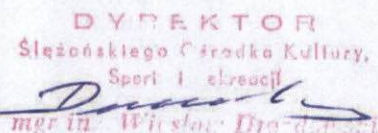 DYREKTOR
Ślężańskiego Ośrodka Kultury,
Sport i ekreacji
mgr in Wiesław